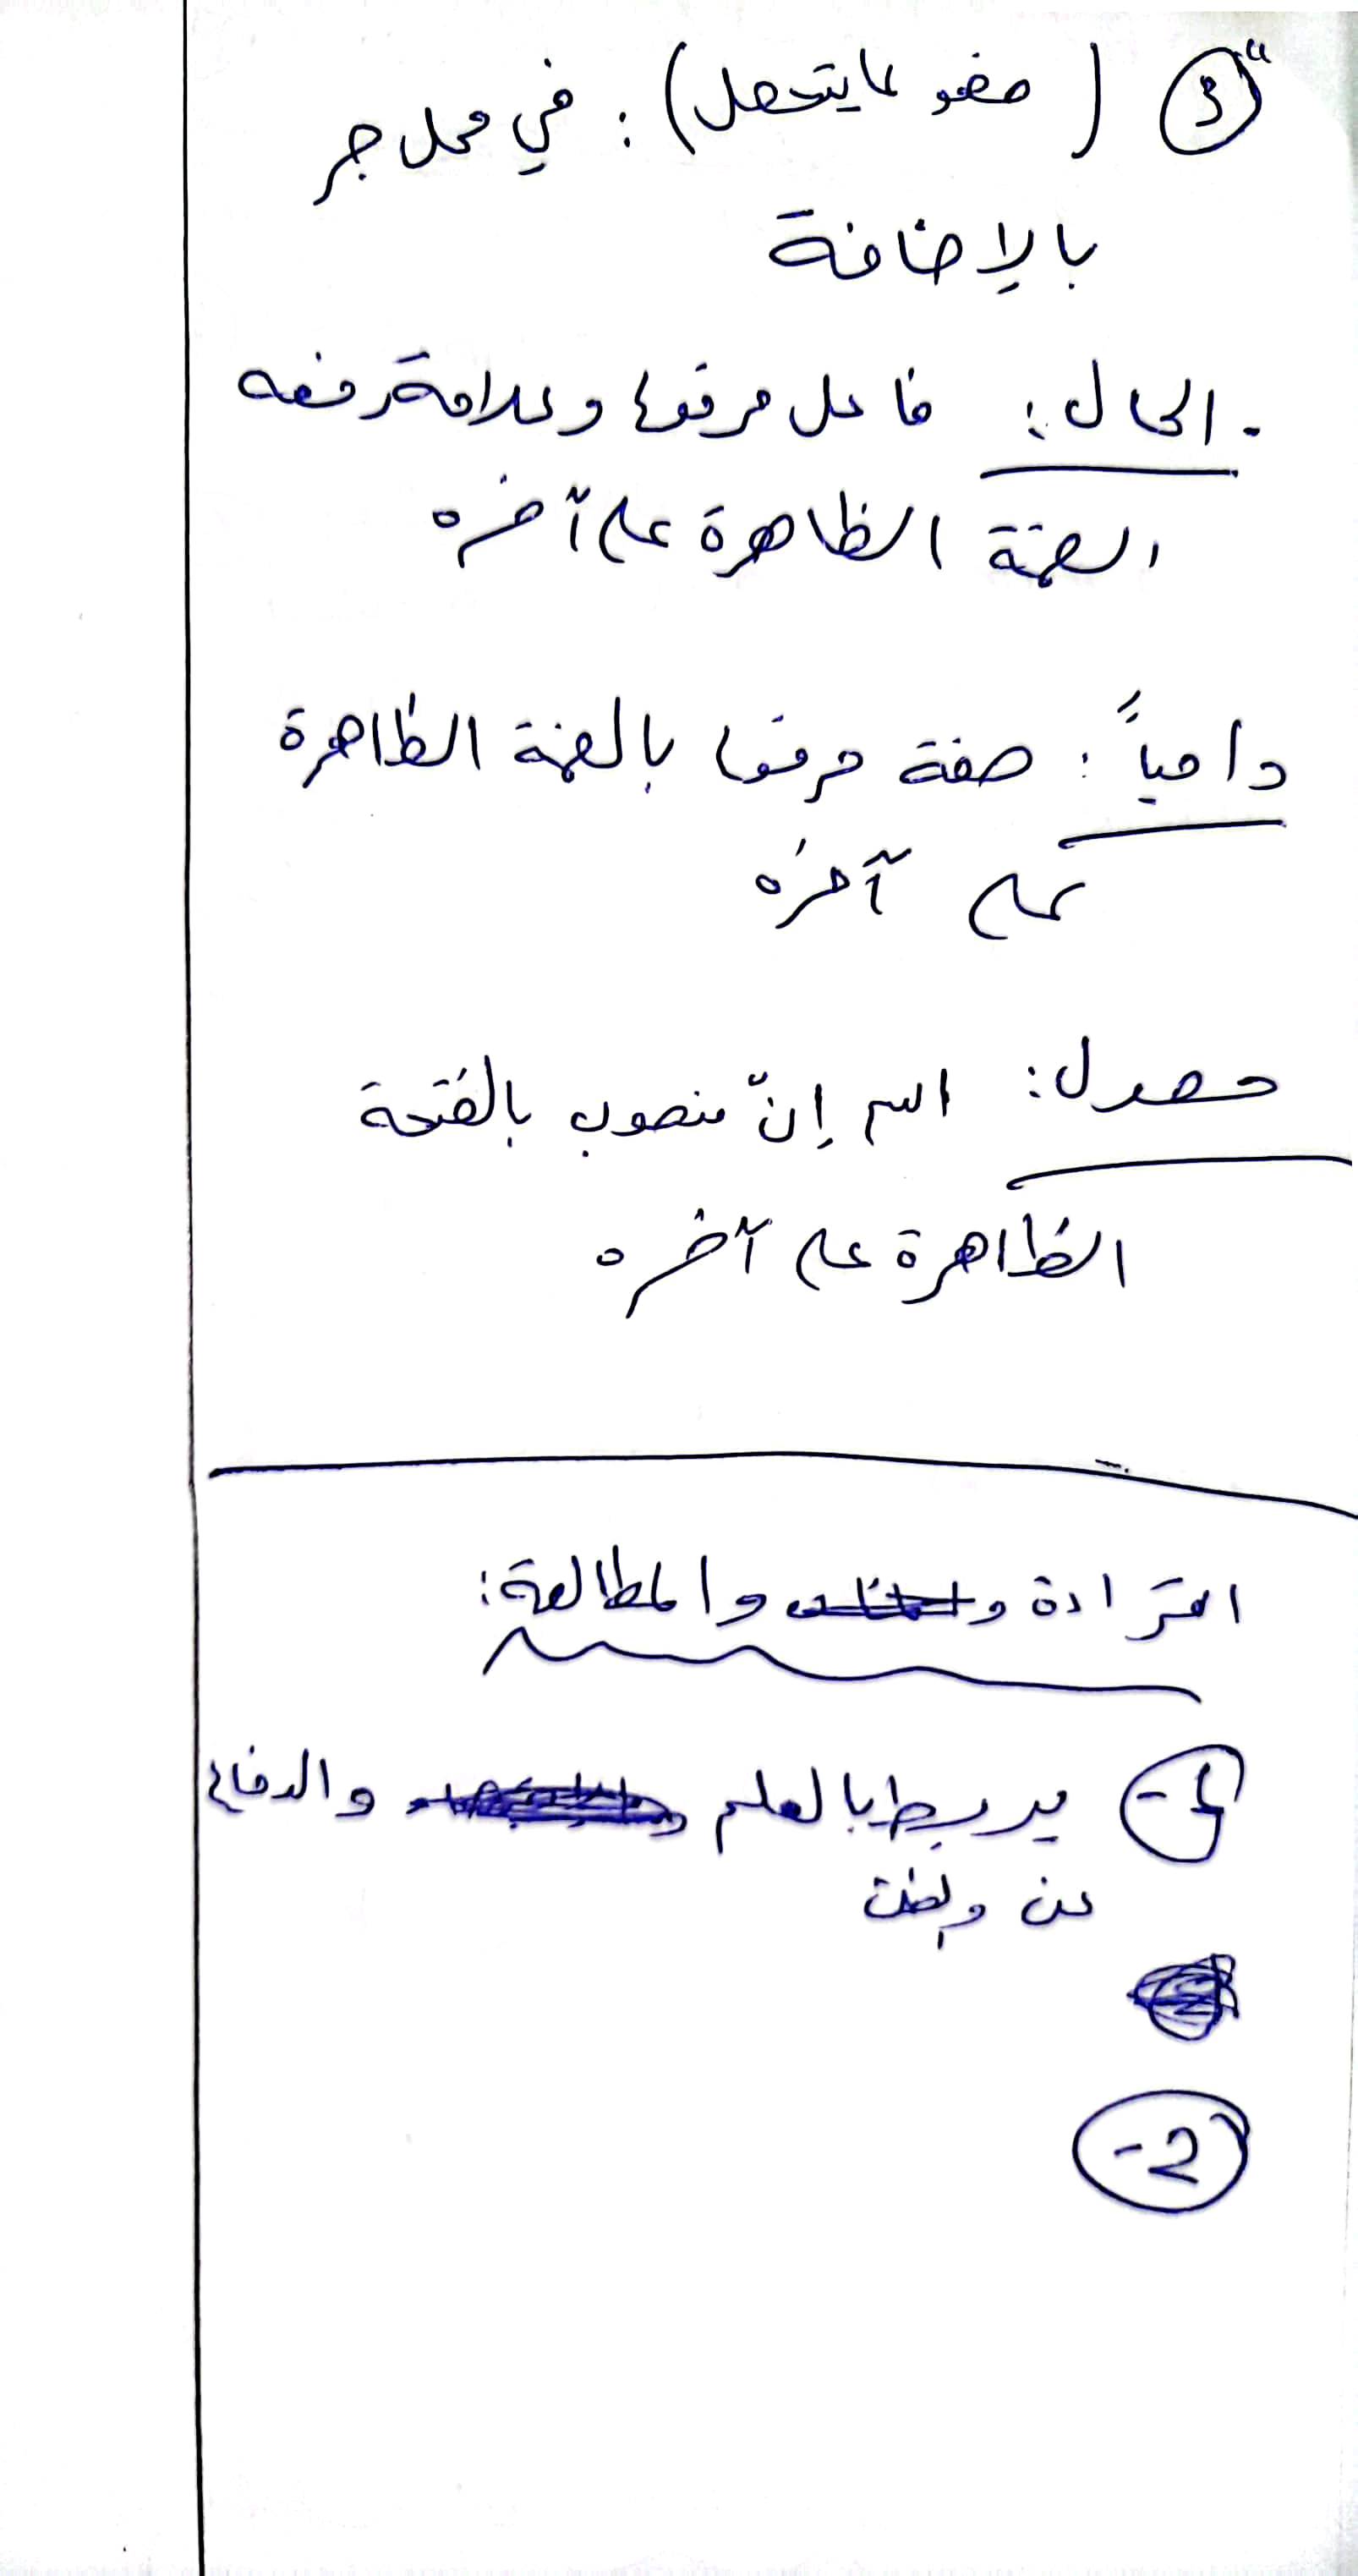 3 (صفو ما يتحصل): في محل جر
بالإضافة
. الحال: فاعل مرفوع وعلامة رفعه
الضمة الظاهرة على آخره
داحياً: صفة مرفوع بالضمة الظاهرة
على آخره
حصدل: اسم إنّ منصوب بالفتحة
الظاهرة على آخره
القرادة و والمطالعة:
1- بالعلم والدفاع
عن وطنه
2-